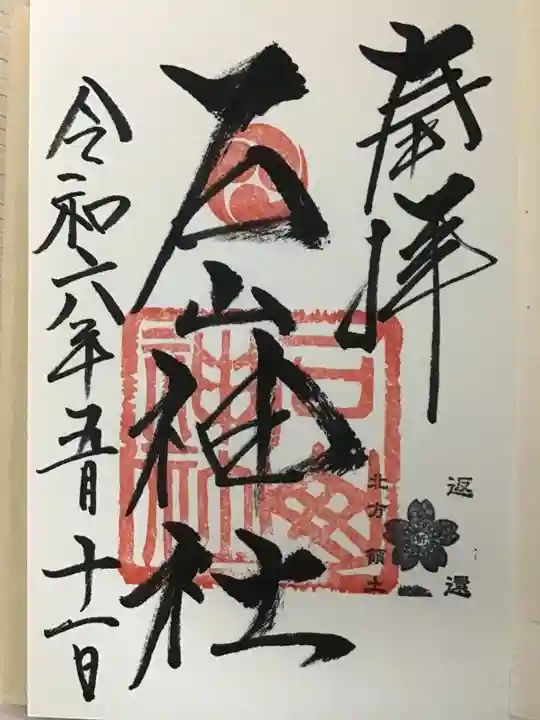 奉拝
返還
北方領土
石山神社
令和六年五月十一日